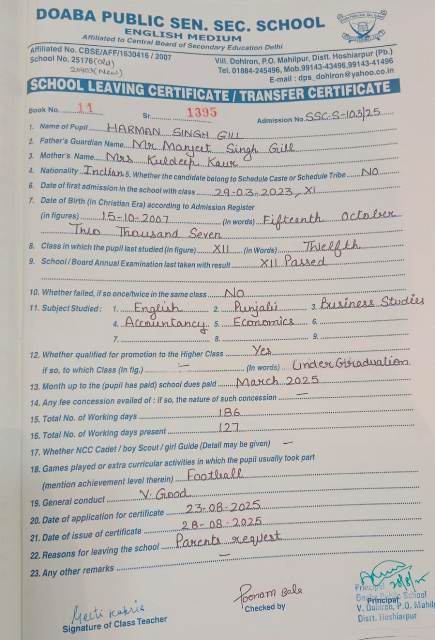 DOABA PUBLIC SEN. SEC. SCHOOL
ENGLISH MEDIUM
Affiliated to Central Board of Secondary Education Delhi
Affiliated No. CBSE/AFF/1630416 / 2007
School No. 25176 (old)
(New)
Vill. Dohlron, P.O. Mahilpur, Distt. Hoshiarpur (Pb.)
Tel. 01884-245496, Mob.99143-43496,99143-41496
E-mail : dps_dohlron@yahoo.co.in
SCHOOL LEAVING CERTIFICATE / TRANSFER CERTIFICATE
Book No. 11 Sr. 1395 Admission No. SSC-S-103/25
1. Name of Pupil HARMAN SINGH GILL
2. Father's Guardian Name Mr Manjeet Singh Gill
3. Mother's Name Mrs Kuldeep Kaur
4. Nationality Indian 5. Whether the candidate belong to Schedule Caste or Schedule Tribe NO
6. Date of first admission in the school with class 29-03-2023, XI
7. Date of Birth (in Christian Era) according to Admission Register
(in figures) 15-10-2007 (In words) Fifteenth October
Two Thousand Seven
8. Class in which the pupil last studied (in figure) XII (in Words) Twelfth
9. School / Board Annual Examination last taken with result XII Passed
10. Whether failed, if so once/twice in the same class No
11. Subject Studied : 1. English 2. Punjabi 3. Business Studies
4. Accountancy 5. Economics 6.
7. 8. 9.
12. Whether qualified for promotion to the Higher Class Yes
if so, to which Class (In fig.) — (In words) Under Graduation
13. Month up to the (pupil has paid) school dues paid March 2025
14. Any fee concession availed of : if so, the nature of such concession —
15. Total No. of Working days 186
16. Total No. of Working days present 127
17. Whether NCC Cadet / boy Scout / girl Guide (Detail may be given) —
18. Games played or extra curricular activities in which the pupil usually took part
(mention achievement level therein) Football
19. General conduct V. Good
20. Date of application for certificate 23-08-2025
21. Date of issue of certificate 28-08-2025
22. Reasons for leaving the school Parents request
23. Any other remarks —
Signature of Class Teacher
Poonam Bala
Checked by
Principal
Public School
V. Dohlron, P.O. Mahilp
Distt. Hoshiarpur